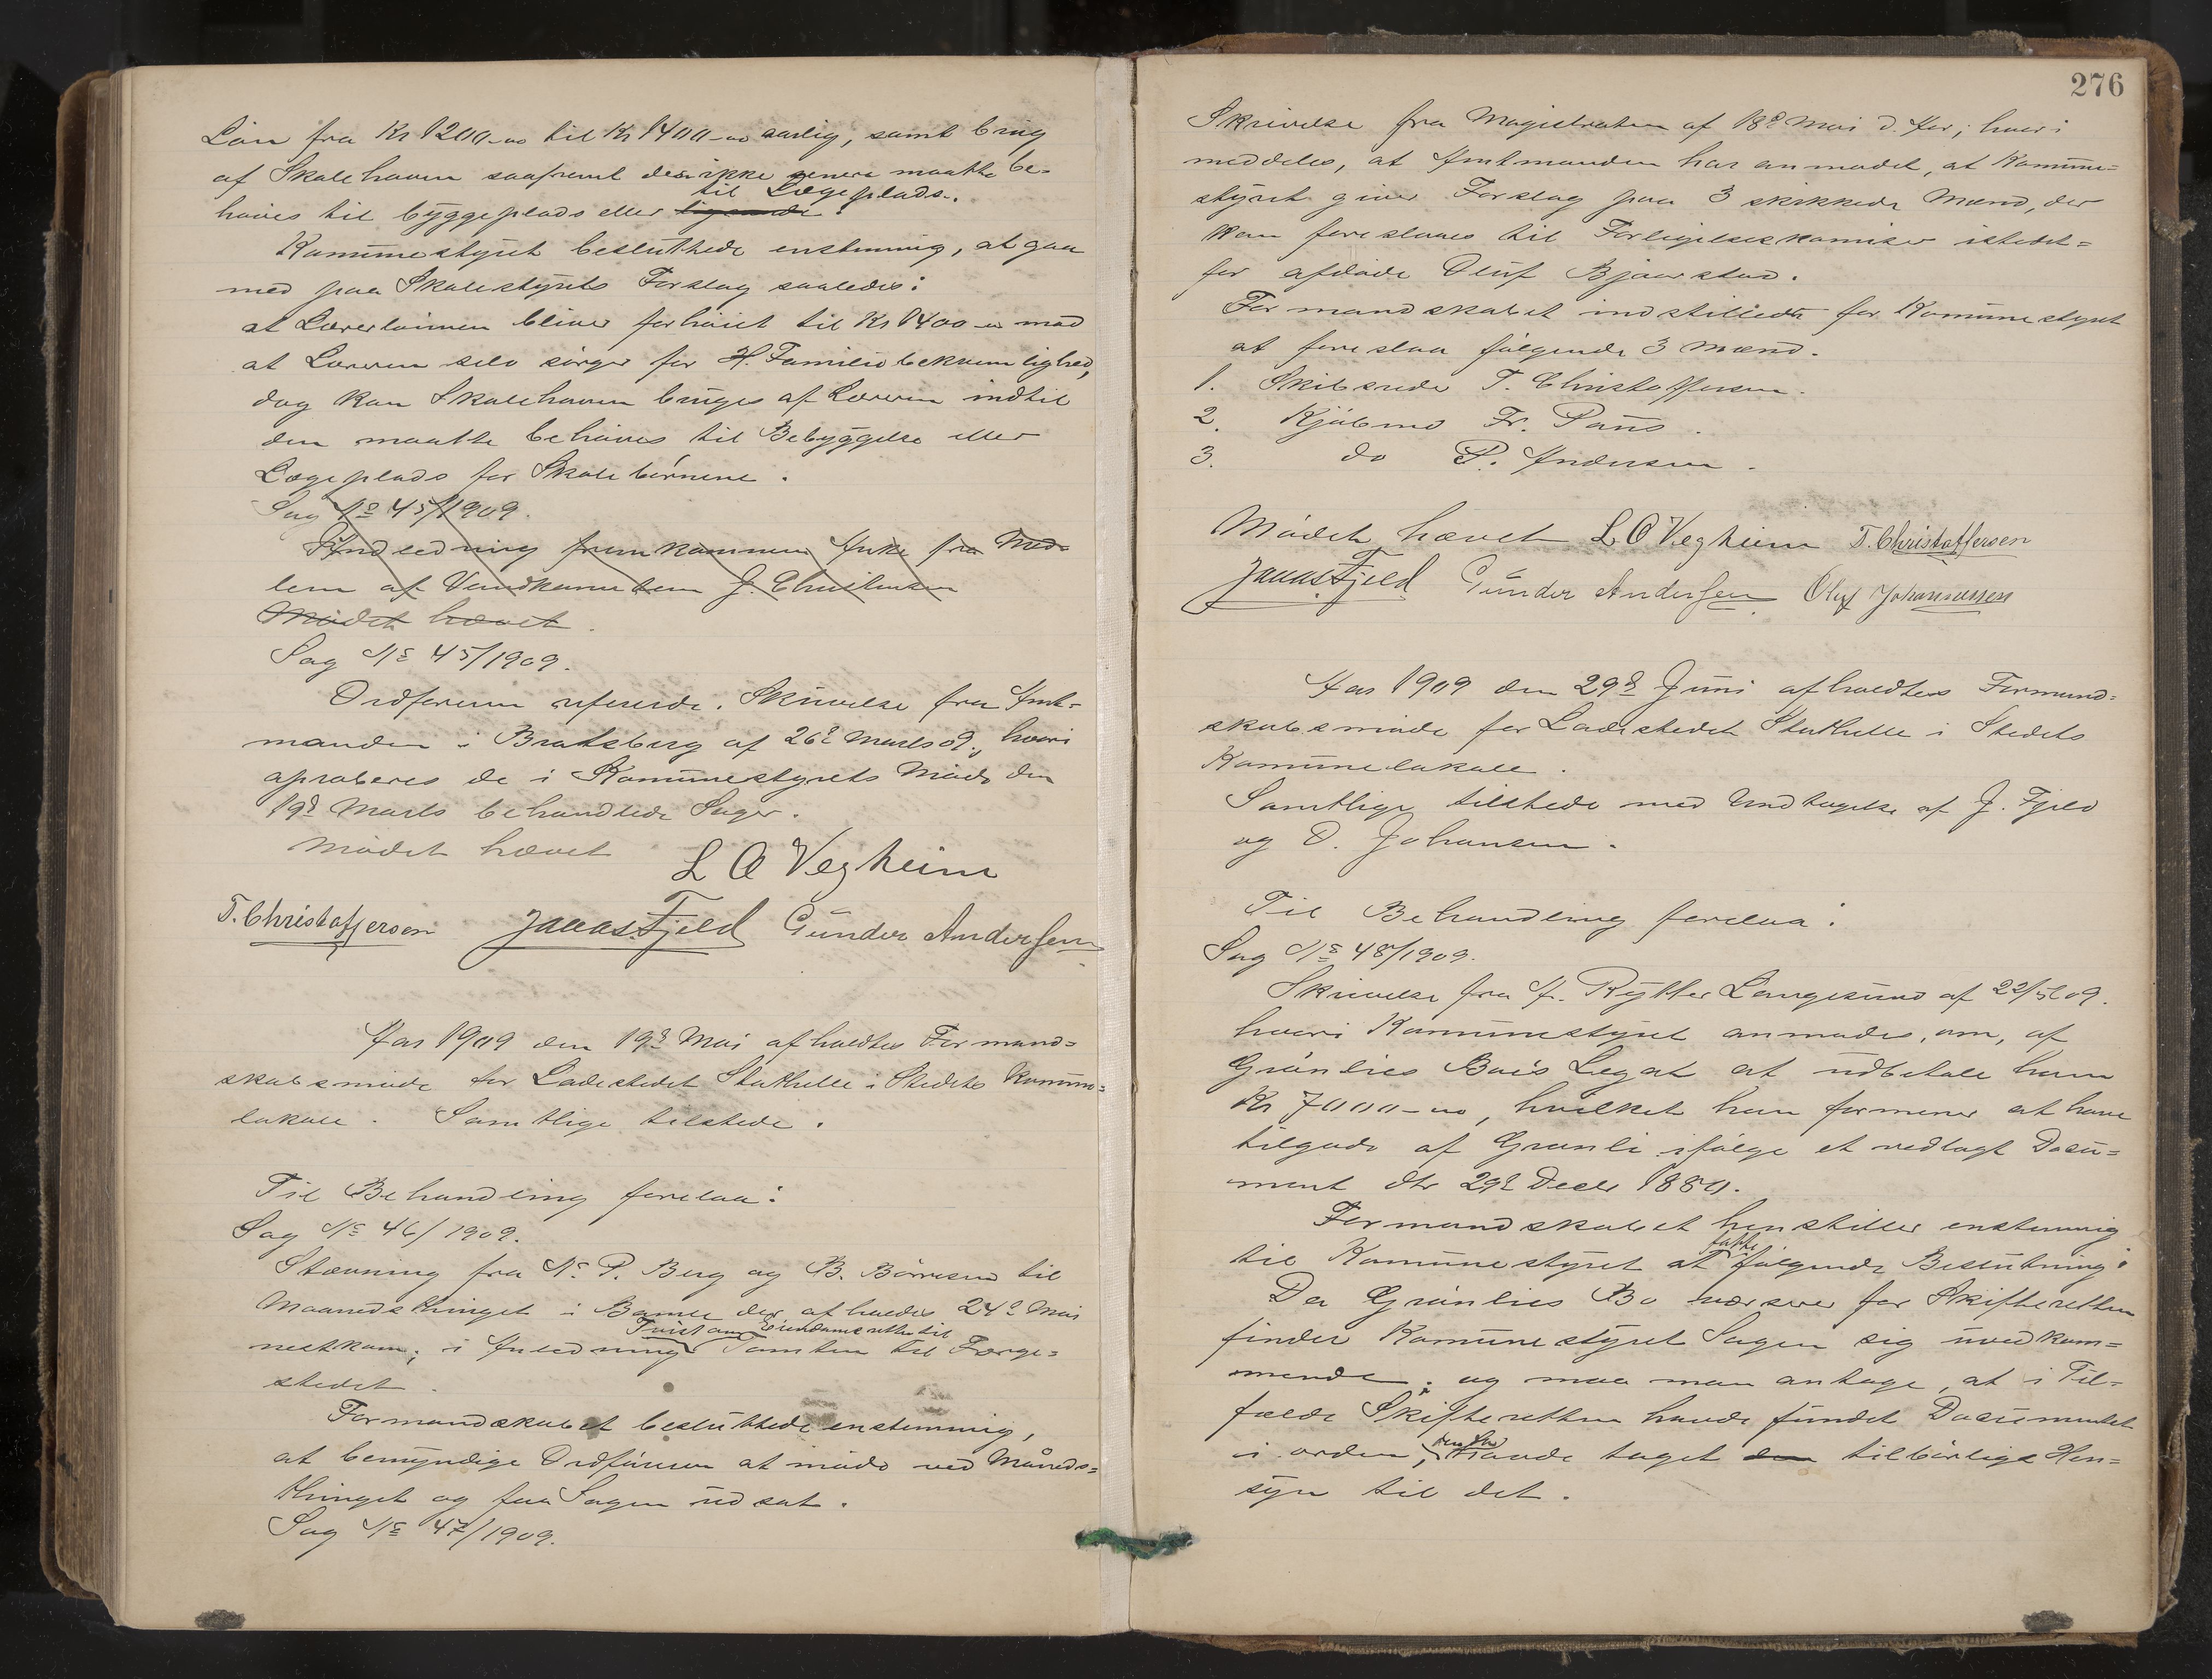 Lön fra Kr 1200-00 til Kr 1400-00 aarlig, samt brug
af Skolehaven saafremt den ikke senere maatte be-
höves til byggeplads eller lignende til Legeplads.
Komunestyret besluttede enstemmig, at gaa
med paa Skolestyrets Forslag saaledes:
at Lærerlönnen bliver forhöiet til Kr 1400-00 mod
at Læreren selv sörger for Familiebekvemlighed,
dog kan Skolehaven bruges af Læreren indtil
den maatte behöves til Bebyggelse eller
Legeplads for Skolebörnene.
Sag No 45/1909.
Andledning fremkommen Anke fra Med-
lem af Vandkomiteen J. Christensen
Mödet hævet.
Sag No 45/1909.
Ordföreren refererede. Skrivelse fra Amt-
manden i Bratsberg af 26de Marts 09, hvori
aproberes de i Komunestyrets Möde den
19de Marts behandlede Sager.
Mödet hævet L O Vegheim
T. Christoffersen Jonas Fjeld Gunder Andersen
Aar 1909 den 19de Mai afholdtes Formand=
skabsmöde for Ladestedet Stathelle i Stedets Komune=
lokale. Samtlige tilstede.
Til Behandling forelaa:
Sag No 46/1909.
Stævning fra N. P. Berg og B. Börresen til
Maanedsthinget i Bamle der afholdes 24de Mai
Tvist om Eiendomsretten til
nestkom; i Anledning Tomten til Færge=
stedet.
Formandskabet besluttede enstemmig,
at bemyndige Ordföreren at möde ved Måneds=
thinget og faa Sagen udsat.
Sag No 47/1909.
276
Skrivelse fra Magistraten af 18de Mai d. Aar; hvori
meddeles, at Amtmanden har anmodet, at Komune=
styret giver Forslag paa 3 skikkede Mænd, der
kan foreslaaes til Forligelseskomisær istedet=
for afdöde Oluf Bjaarstad.
Formandskabet indstillede for Komunestyret
at foreslaa fölgende 3 Mænd.
1. Skibsreder T. Christoffersen.
2. Kjöbmd Fr. Paus.
3. do P. Andersen.
Mödet hævet L O Vegheim T. Christoffersen
Jonas Fjeld Gunder Andersen Oluf Johannessen
Aar 1909 den 29de Juni afholdtes Formand=
skabsmöde for Ladestedet Stathelle i Stedets
Komunelokale.
Samtlige tilstede med Undtagelse af J. Fjeld
og O. Johansen.
Til Behandling forelaa:
Sag No 48/1909.
Skrivelse fra A. Rytter Langesund af 22/5 09.
hvori Komunestyret anmodes, om, af
Grönlies Bo's Legat at udbetale ham
Kr 7000-00, hvilket han formener at have
tilgode af Grønli ifölge et vedlagt Docu=
ment dtr 29de Decbr 1880.
Formandskabet henstiller enstemmig
til Komunestyret at fatte fölgende Beslutning:
Da Grönlies Bo for Skifteretten
finder Komunestyret Sagen sig uvedkom=
mende; og maa man antage, at i Til=
fælde Skifteretten havde fundet Documentet
i orden, havde taget den tilbörlige Hen=
syn til det.